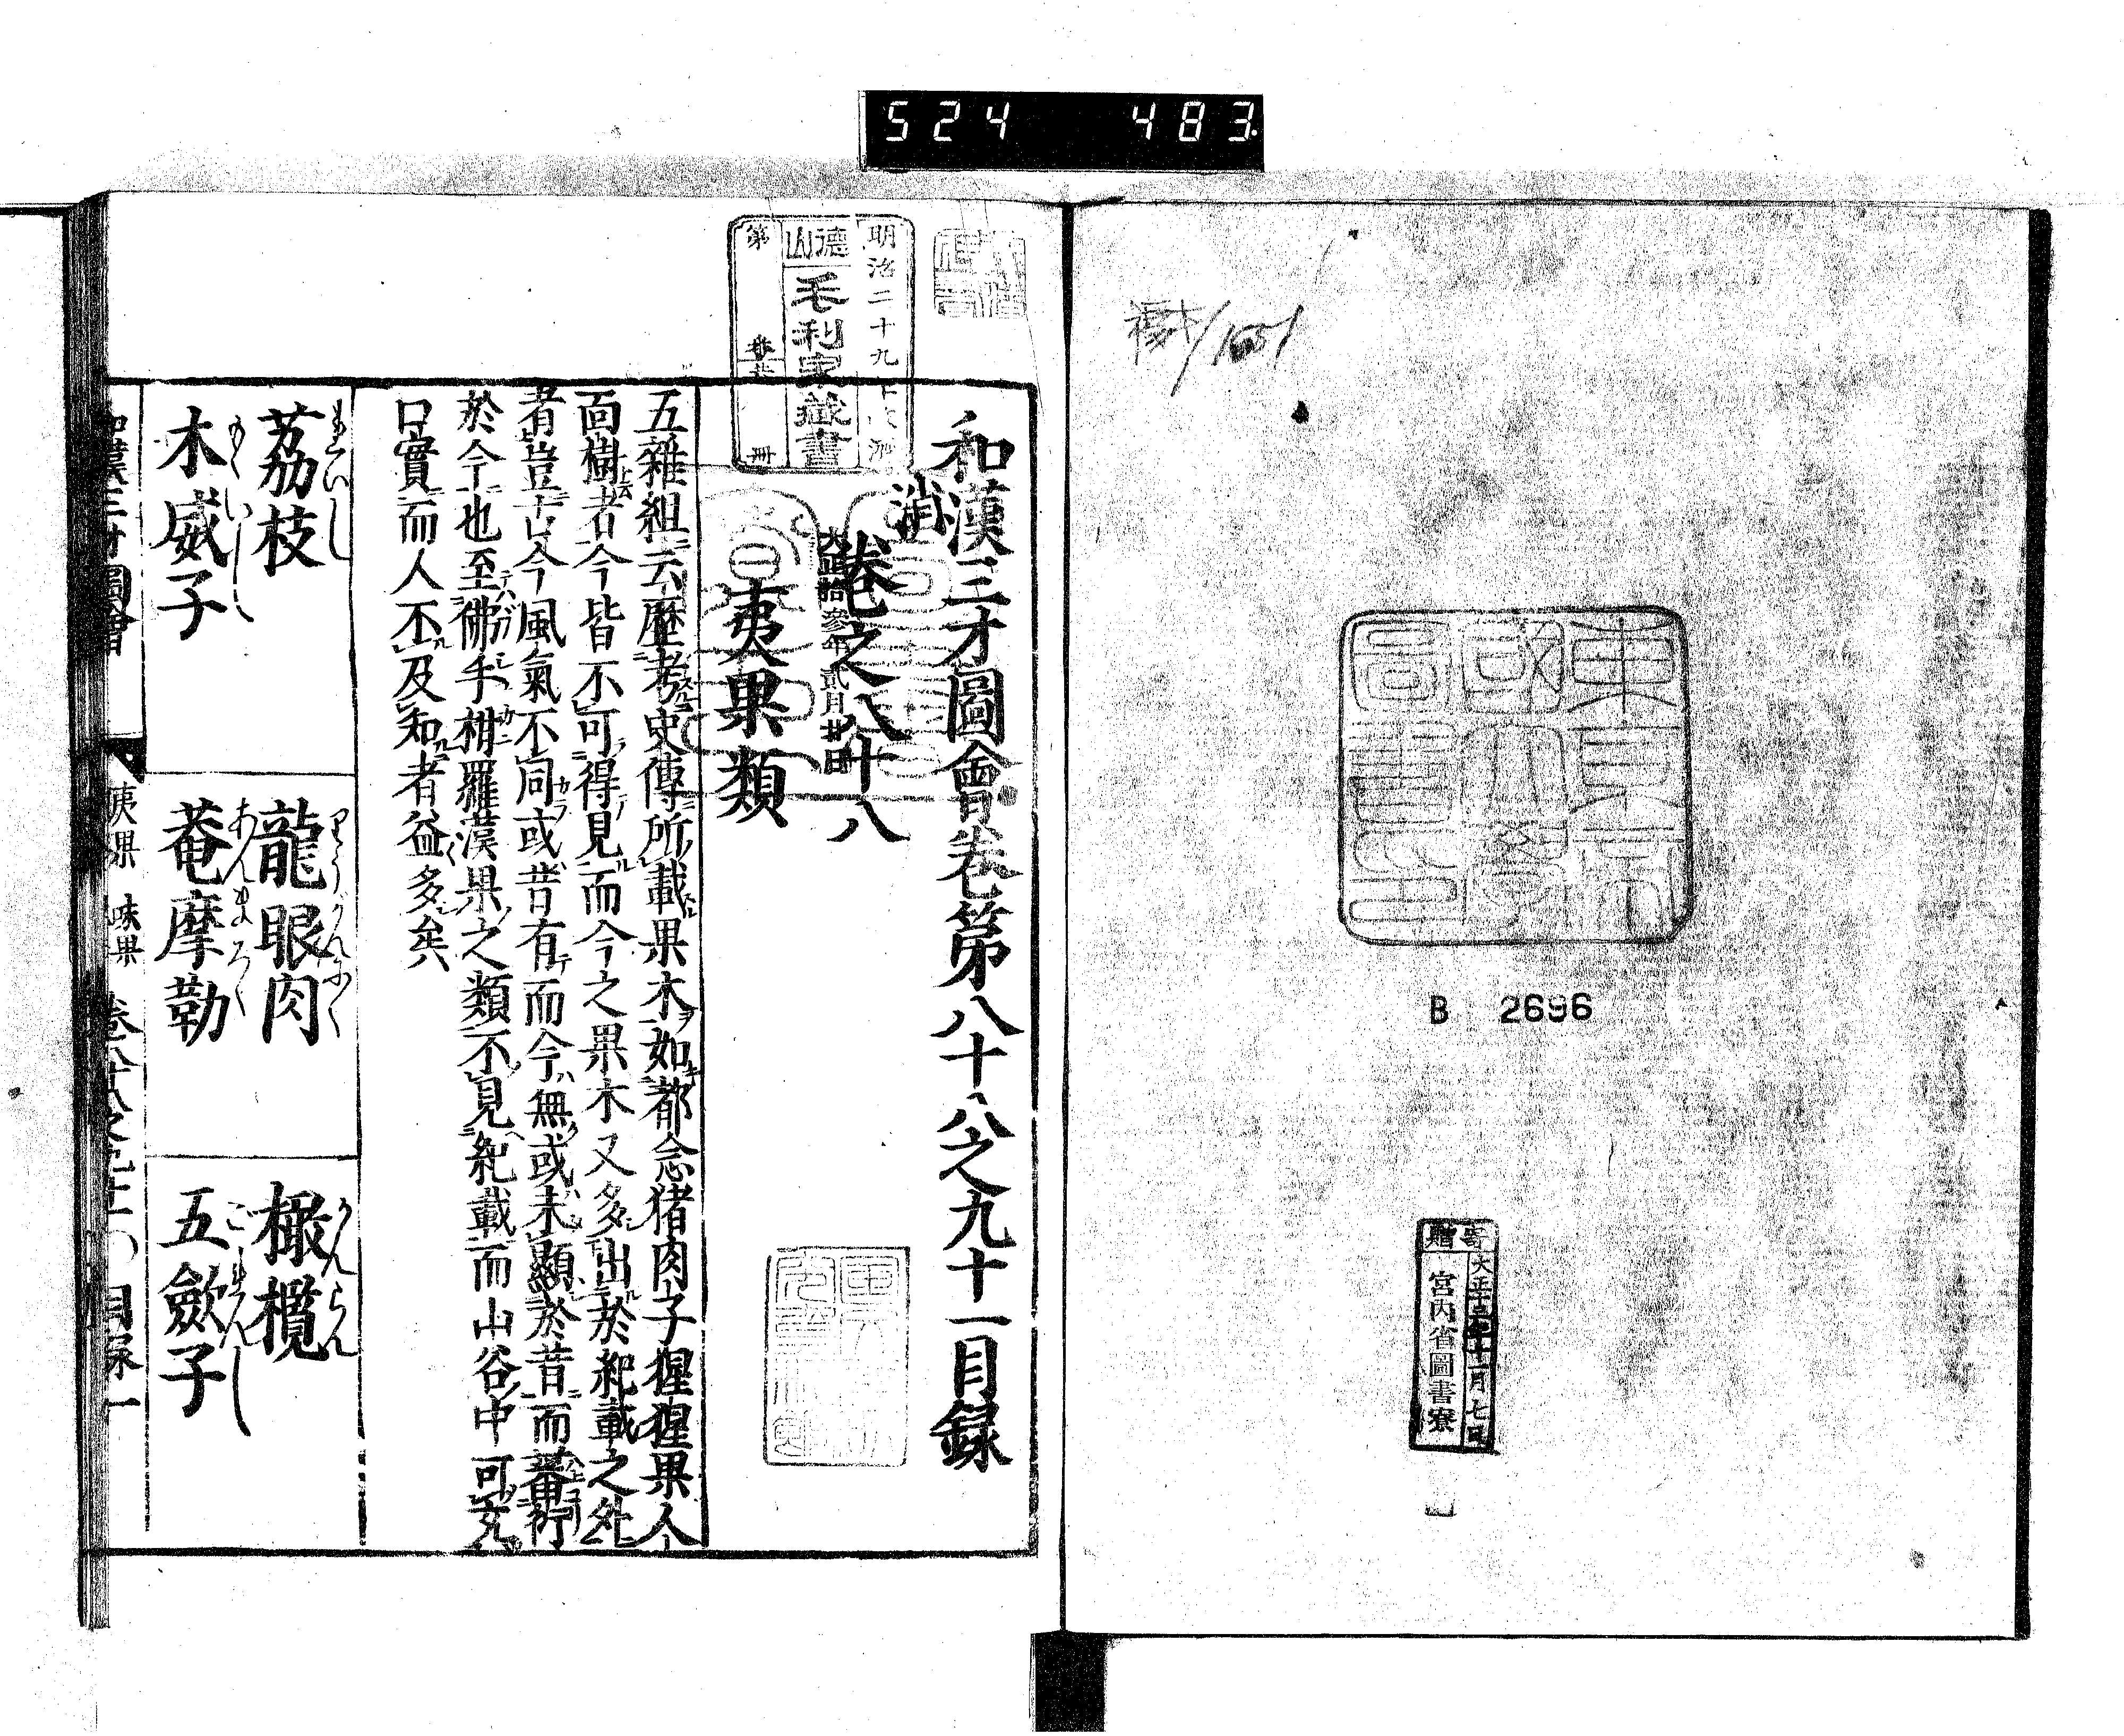 524 483
東京
帝國大學
圖書印
B 2696
寄贈
大正十三年十一月七日
宮内省圖書寮
明治二十九年改濟
德山
毛利家藏書
第
冊
消
大正拾參年貳月廿日
和漢三才圖會卷第八十八之九十一目録
卷之八十八
夷果類
五雜組云歷考史傳所載果木如都念猪肉子猩猩果人
面樹者今皆不可得見而今之果木又多出於紀載之外
者豈古今風氣不同或昔有而今無或未顯於昔而蕃衍
於今也至佛手柑羅漢果之類不見紀載而山谷中可充
口實而人不及知者益多矣
荔枝
龍眼肉
橄欖
木威子
菴摩勒
五歛子
和漢三才圖會 夷果 味果 卷八十八之九十一 目録 一